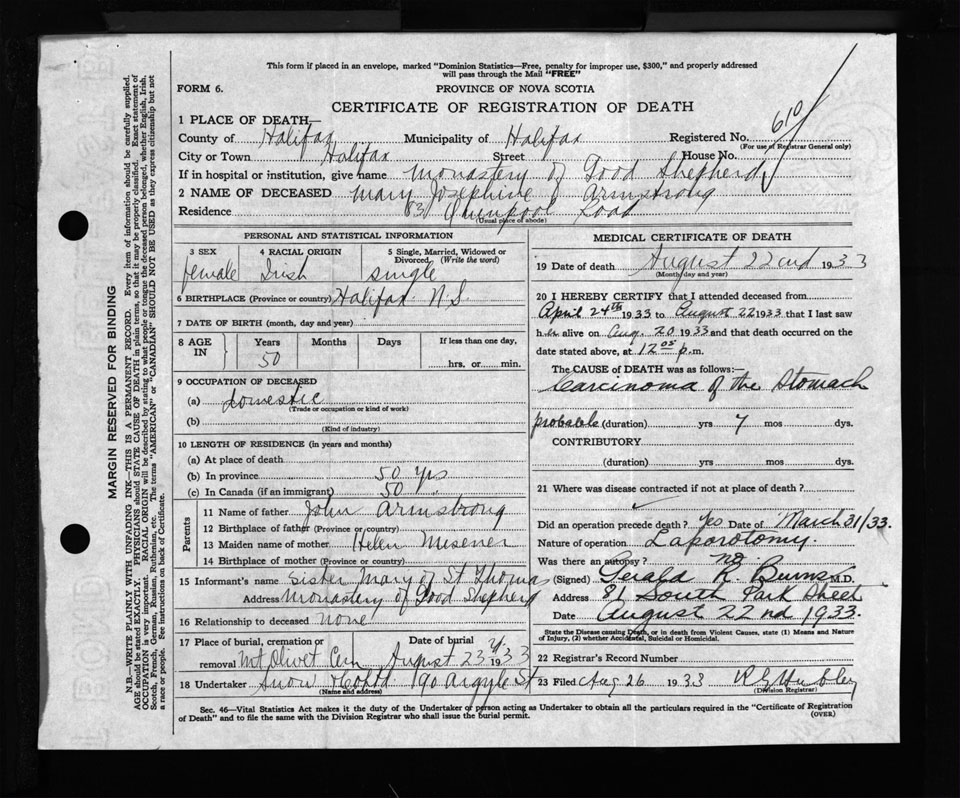 This form if placed in an envelope, marked "Dominion Statistics—Free, penalty for improper use, $300," and properly addressed
will pass through the Mail "FREE"
FORM 6.
PROVINCE OF NOVA SCOTIA
CERTIFICATE OF REGISTRATION OF DEATH
1 PLACE OF DEATH—
County of Halifax Municipality of Halifax Registered No. 610
(For use of Registrar General only)
City or Town Halifax Street House No.
If in hospital or institution, give name Monastery of Good Shepherd
2 NAME OF DECEASED Mary Josephine Armstrong
Residence 83 Quinpool Road
(Usual place of abode)
PERSONAL AND STATISTICAL INFORMATION
3 SEX 4 RACIAL ORIGIN 5 Single, Married, Widowed or Divorced (Write the word)
female Irish single
6 BIRTHPLACE (Province or country) Halifax N.S.
7 DATE OF BIRTH (month, day and year)
8 AGE IN Years Months Days If less than one day,
50 hrs. or min.
9 OCCUPATION OF DECEASED
(a) domestic
(Trade or occupation or kind of work)
(b)
(Kind of industry)
10 LENGTH OF RESIDENCE (in years and months)
(a) At place of death
(b) In province 50 yrs
(c) In Canada (if an immigrant) 50 "
Parents
11 Name of father John Armstrong
12 Birthplace of father (Province or country)
13 Maiden name of mother Helen Misener
14 Birthplace of mother (Province or country)
15 Informant's name Sister Mary of St Thomas
Address Monastery of Good Shepherd
16 Relationship to deceased none
17 Place of burial, cremation or removal Mt Olivet Cem Date of burial August 23rd 1933
18 Undertaker Snow 190 Argyle St
(Name and address)
MEDICAL CERTIFICATE OF DEATH
19 Date of death August 22nd 1933
(Month, day and year)
20 I HEREBY CERTIFY that I attended deceased from
April 24th 1933 to August 22 1933 that I last saw
her alive on Aug. 20 1933 and that death occurred on
date stated above, at 12 05 p.m.
The CAUSE of DEATH was as follows:—
Carcinoma of the Stomach
probable (duration) yrs 7 mos dys.
CONTRIBUTORY
(duration) yrs. mos. dys.
21 Where was disease contracted if not at place of death?
Did an operation precede death? Yes Date of March 31/33.
Nature of operation Laparotomy.
Was there an autopsy? no
(Signed) Gerald R. Burns M.D.
Address 81 South Park Street
Date August 22nd 1933.
State the Disease causing Death, or in death from Violent Causes, state (1) Means and Nature
of Injury, (2) whether Accidental, Suicidal or Homicidal.
22 Registrar's Record Number
23 Filed Aug 26 1933 Hubley
(Division Registrar)
Sec. 46—Vital Statistics Act makes it the duty of the Undertaker or person acting as Undertaker to obtain all the particulars required in the "Certificate of Registration
of Death" and to file the same with the Division Registrar who shall issue the burial permit. (OVER)
MARGIN RESERVED FOR BINDING
N.B.—WRITE PLAINLY WITH UNFADING INK—THIS IS A PERMANENT RECORD. Every item of information should be carefully supplied.
AGE should be stated EXACTLY. PHYSICIANS should STATE CAUSE OF DEATH in plain terms, so that it may be properly classified. Exact statement of
OCCUPATION is very important. RACIAL ORIGIN will be described by stating to what people or tongue the deceased person belonged, whether English, Irish,
Scotch, French, German, Russian, Ruthenian, etc. The terms "AMERICAN" or "CANADIAN" SHOULD NOT BE USED as they express citizenship but not
a race or people. See instructions on back of Certificate.